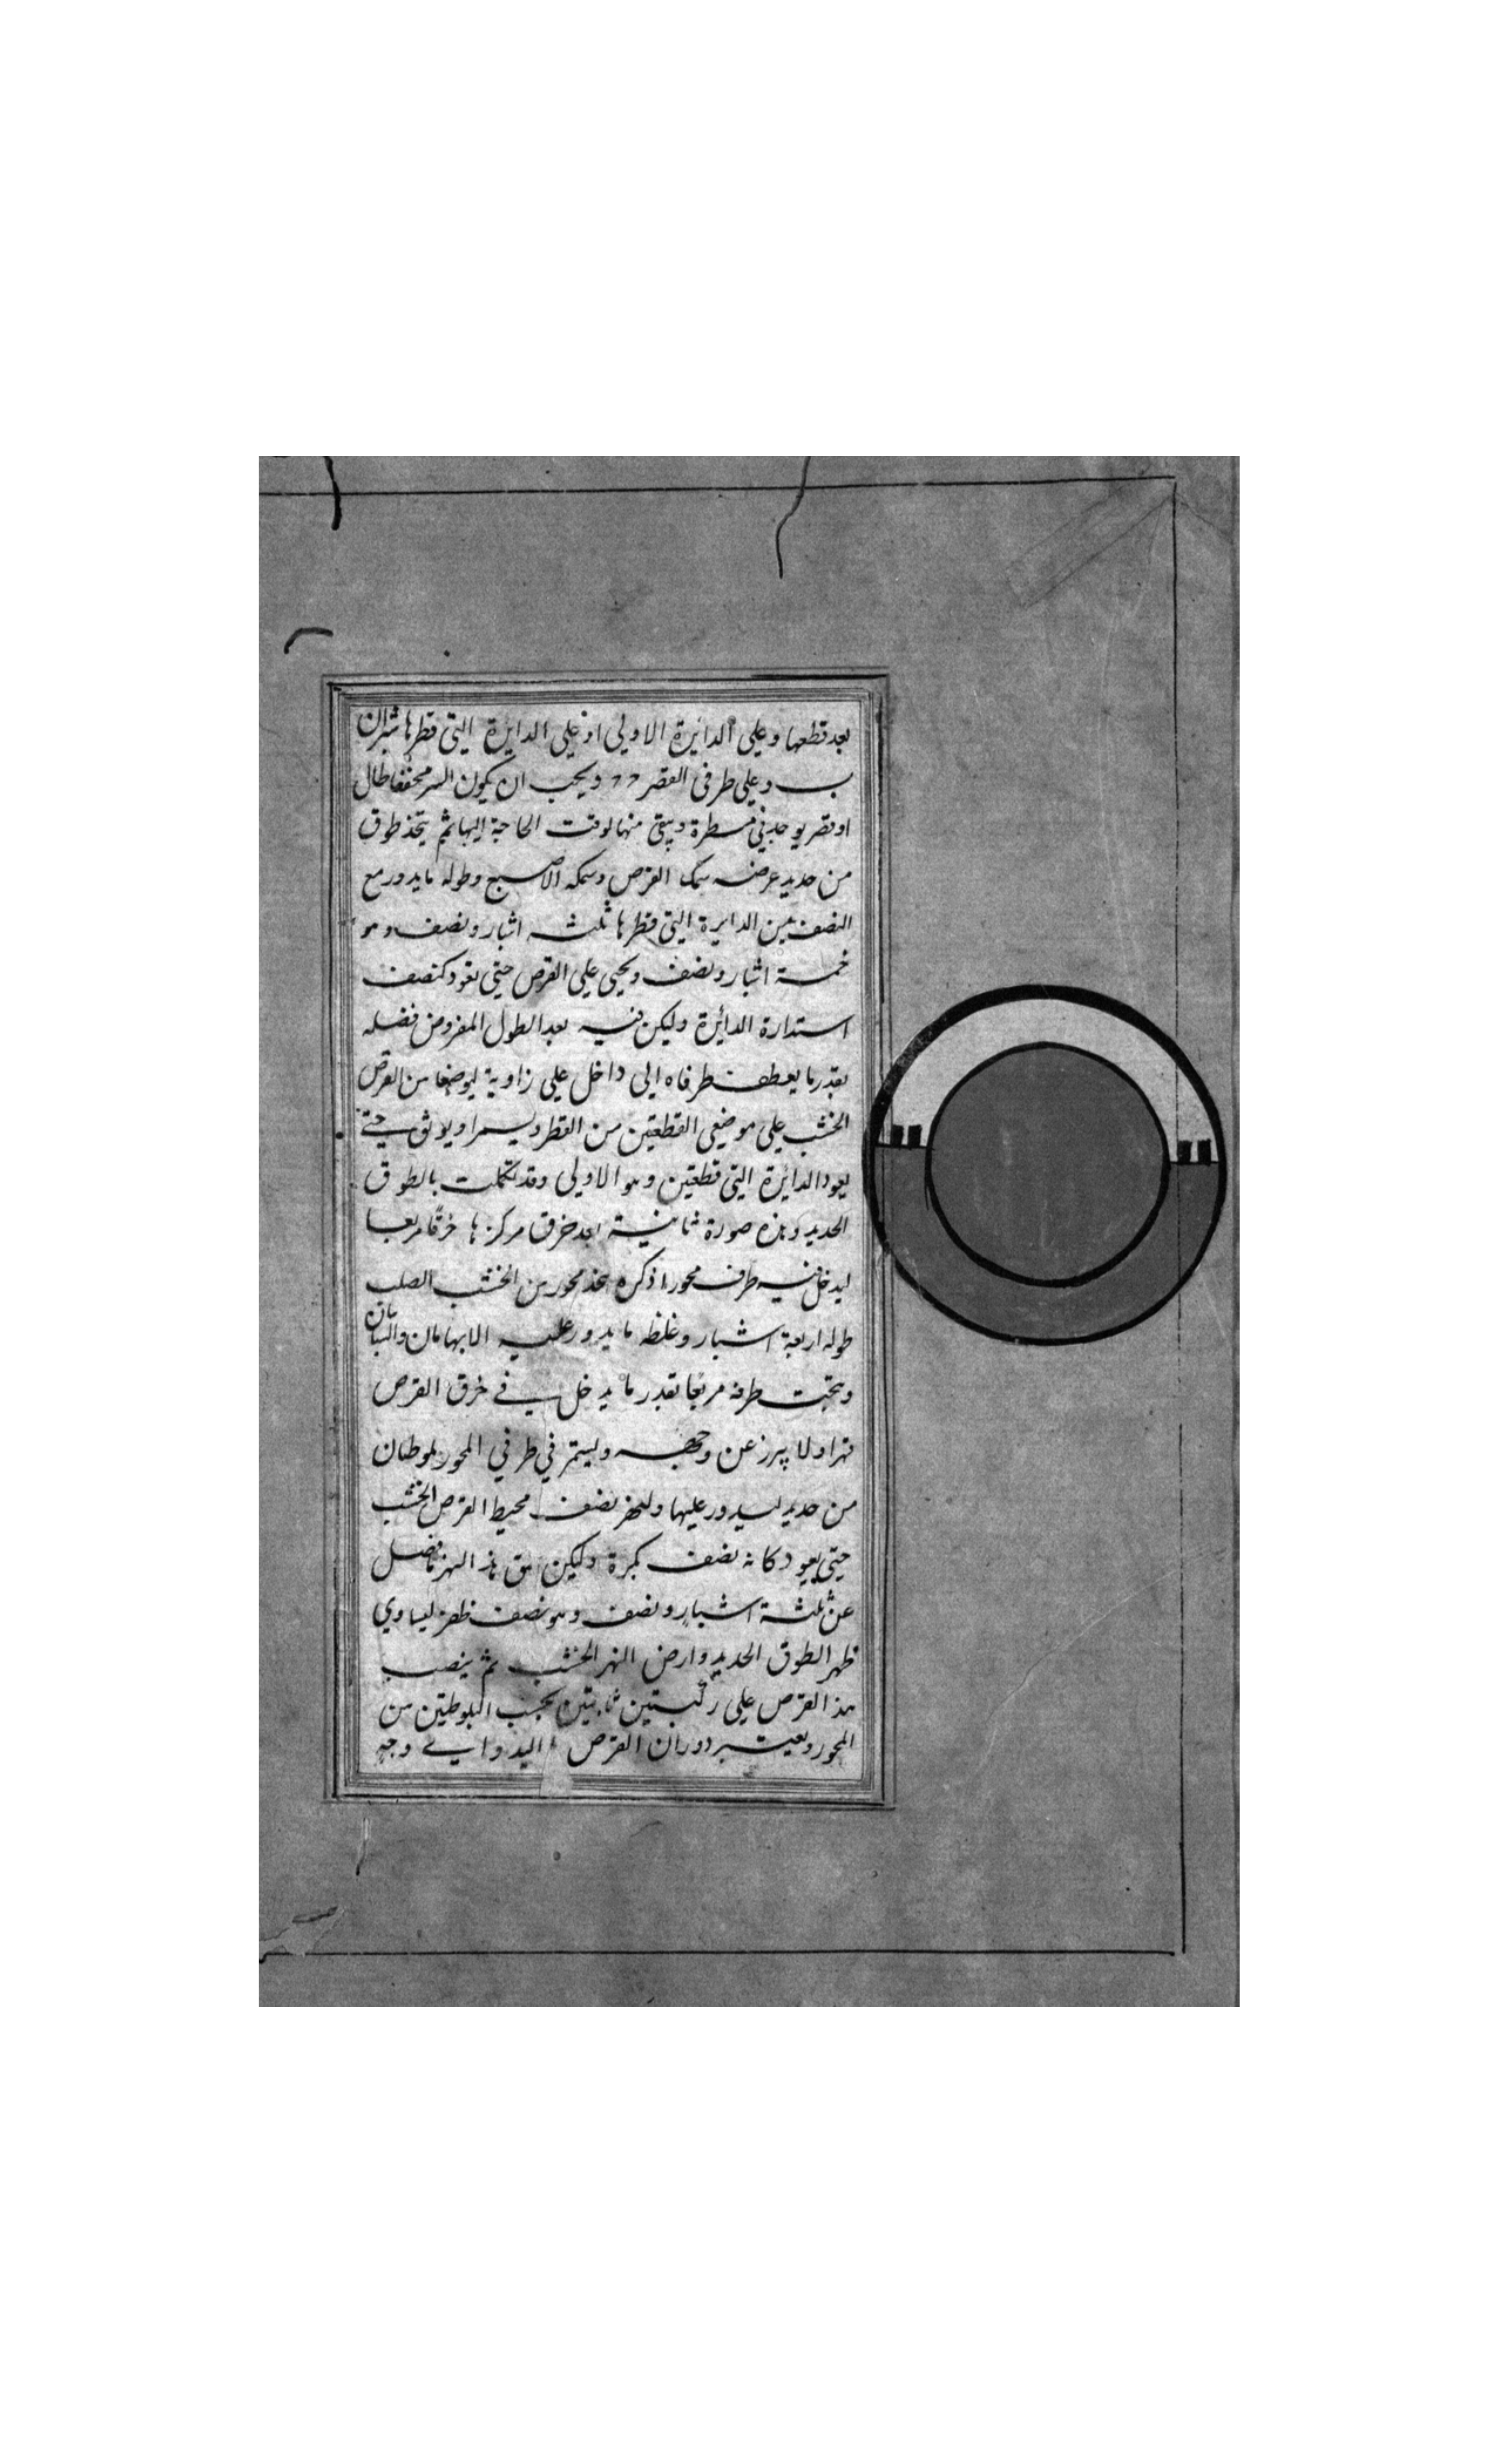 بعد قطعها وعلى الدايرة الاولى اذ على الدايرة التي قطرها شبران
ب وعلى طرفى القصر د د ويجب ان يكون السر محففا طال
او نقر يوجد في مسطرة ويبقى منها لوقت الحاجة اليها ثم يتخذ طوق
من حديد عرضه سمك القرص وسمكه الاصبع وطوله ما يدور مع
النصف من الدايرة التي قطرها ثلثه اشبار ونصف وهو
خمسة اشبار ونصف ويحنى على القرص حتى تعود كنصف
استدارة الدائرة وليكن فيه بعد الطول المفروض فضله
بقدر ما يعطف طرفاه الى داخل على زاوية ليوضعا من القرص
الخشب على موضعى القطعتين من القطر ويسمرا ويوثق حتى
يعود الدائرة التي قطعتين وهو الاولى وقد تكملت بالطوق
الحديد وهذه صورة ثانية بعد خرق مركزها خرقا مربعا
ليدخل فيه طرف محور اذكره يتخذ محور من الخشب الصلب
طوله اربعة اشبار وغلظه ما يدور عليه الابهامان والسبابتان
وينحت طرفه مربعا بقدر ما يدخل في خرق القرص
قهرا ولا يبرز عن وجهه ويستمر في طرفي المحور بلوطتان
من حديد ليدور عليها ولنهر نصف محيط القرص الخشب
حتى يعود كانه نصف بكرة وليكن عمق هذا النهر ما فضل
عن ثلثة اشبار ونصف وهو نصف ظفر ليساوي
ظهر الطوق الحديد وارض النهر الخشب ثم ينصب
هذا القرص على ركبتين ثابتين يجب البلوطتين من
المحور ويعتبر دوران القرص اليد واي وجه